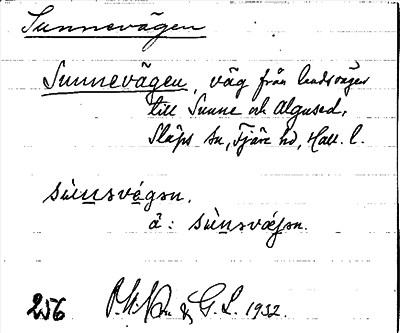 Sunnevägen
Sunnevägen, väg från landsvägen
till Sunne och Algused,
Släps sn, Fjäre hd, Hall. l.
sùnsvägən.
ä: sùnsvæjən.
256 & G. L. 1932.